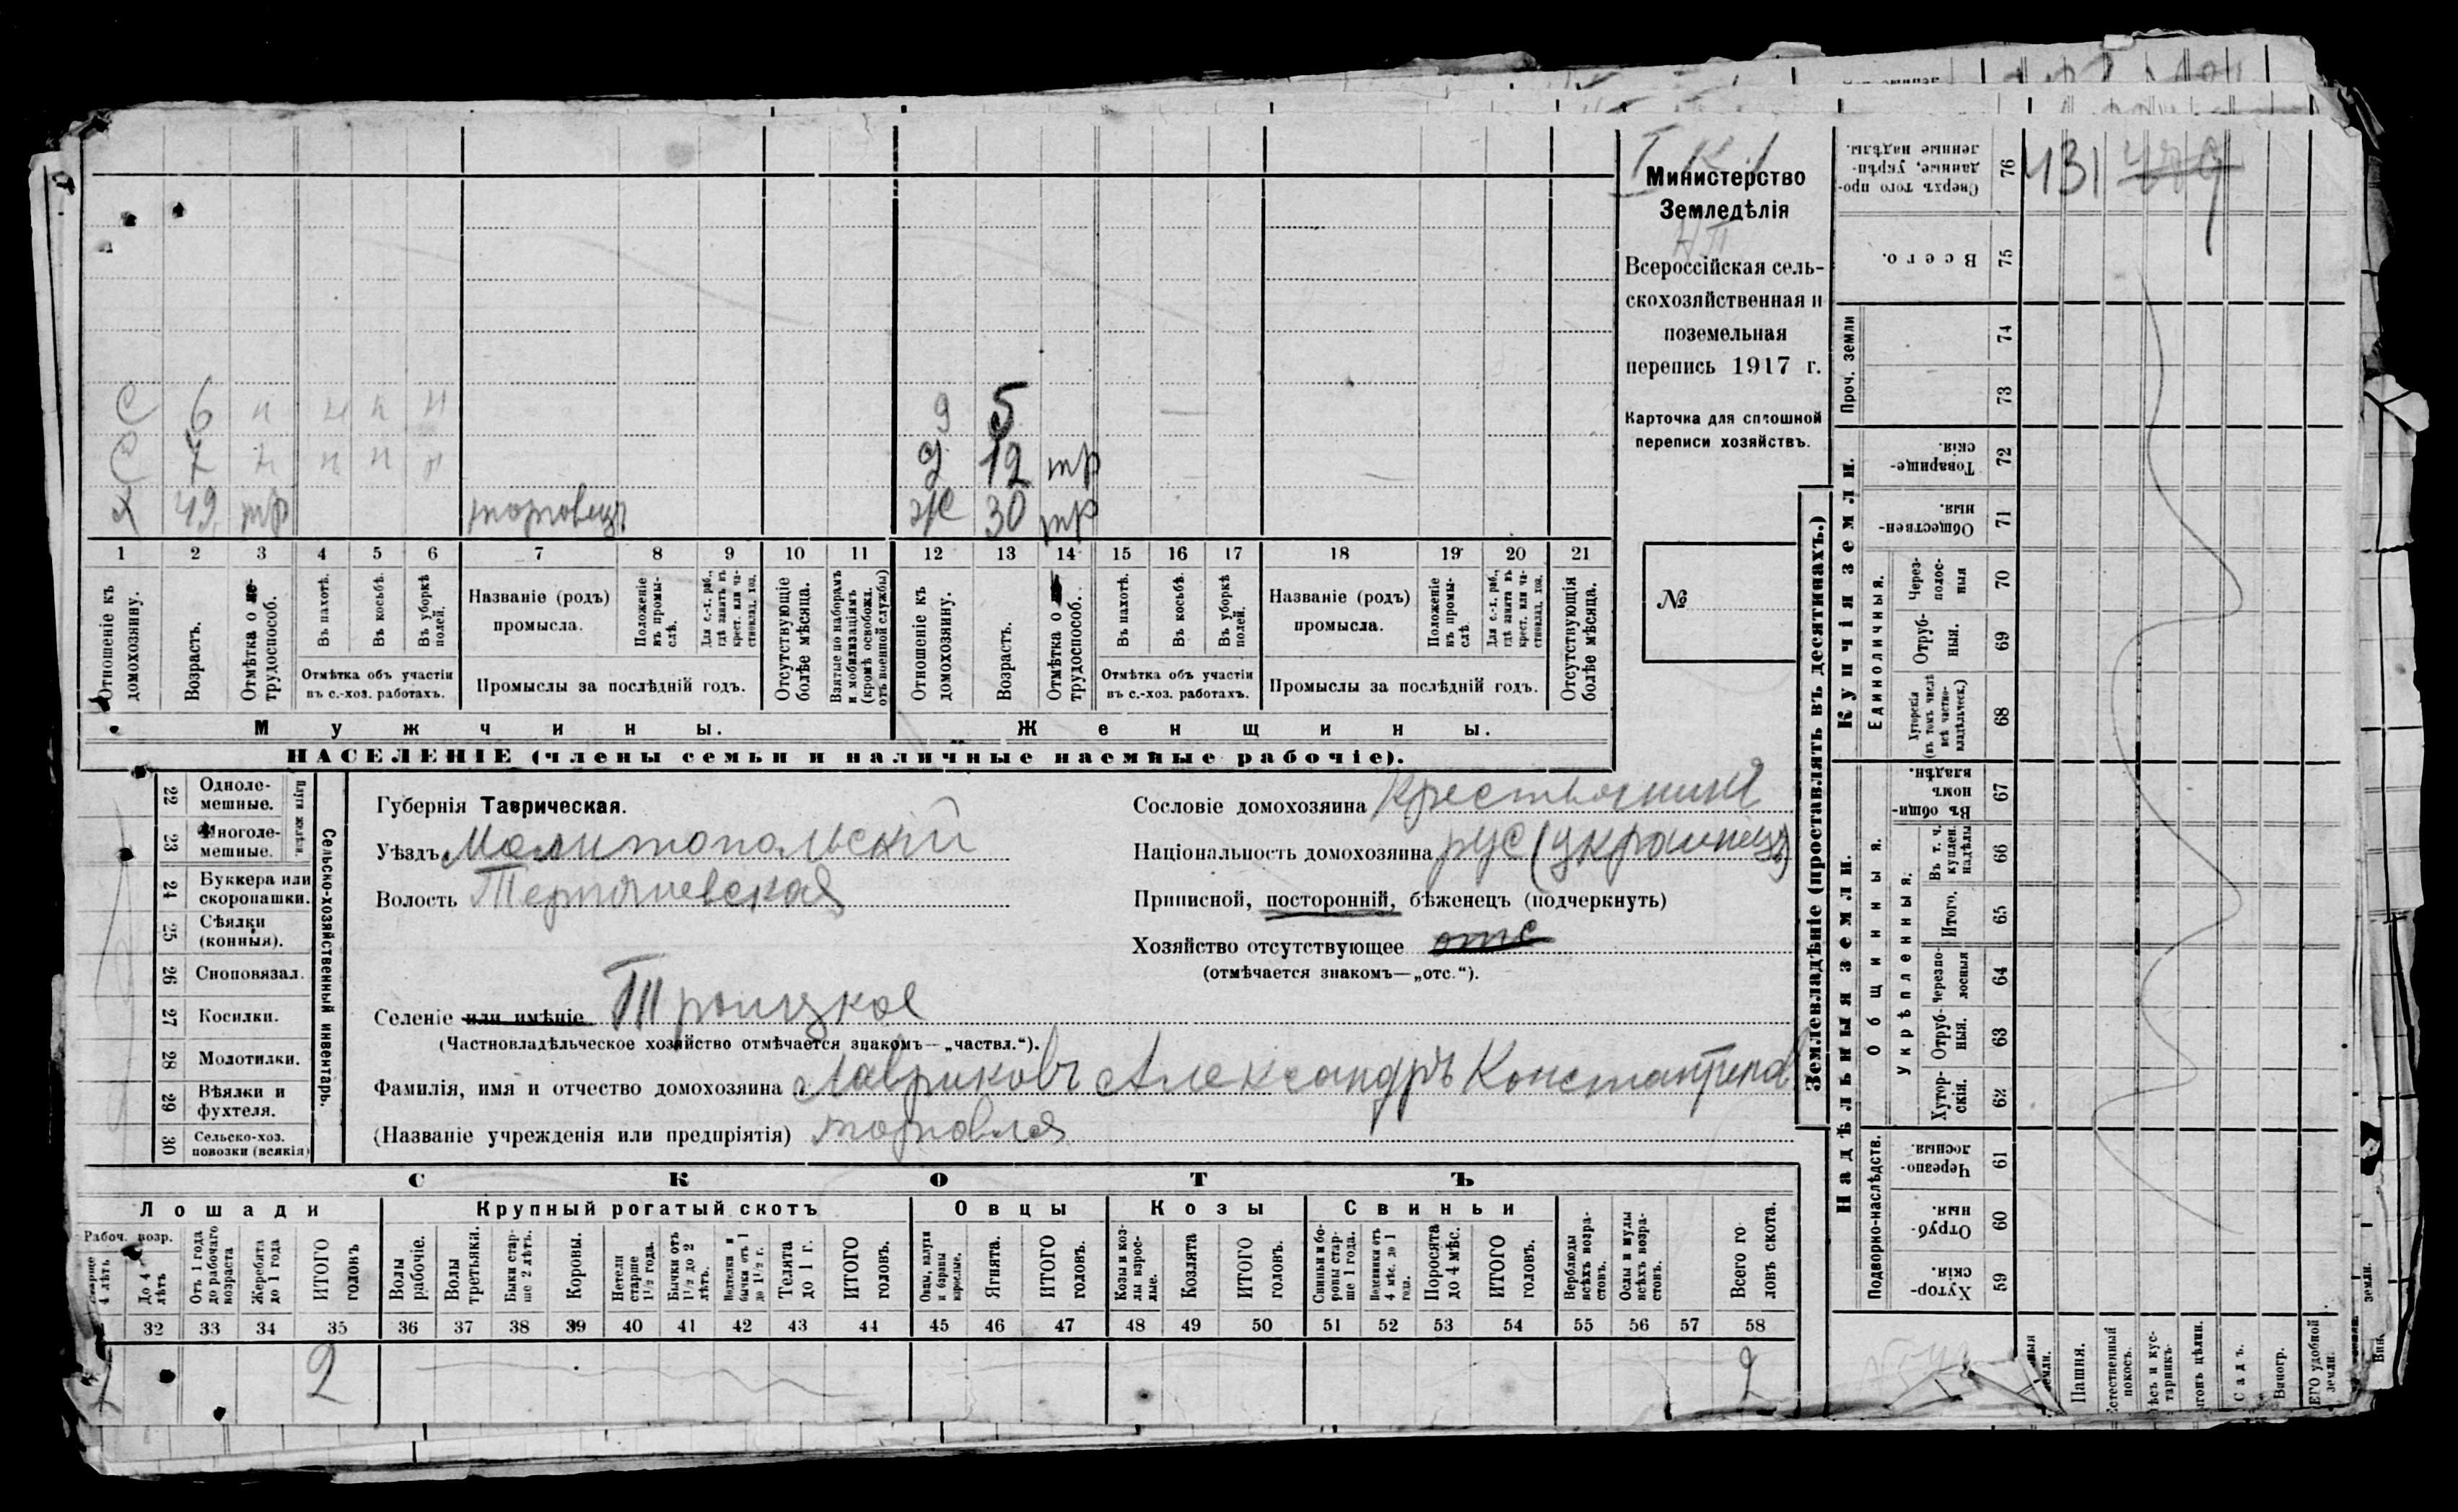 431 479
Министерство
Земледѣлія
Всероссійская сель-
скохозяйственная и
поземельная
перепись 1917 г.
Карточка для сплошной
переписи хозяйствъ.
№
С 6 н н н н
С 7 н н н н
х 49 тр торговецъ
д 5
д 12 тр
ж 30 тр
1 2 3 4 5 6 7 8 9 10 11 12 13 14 15 16 17 18 19 20 21
Отношеніе къ домохозяину.
Возрастъ.
Отмѣтка о не-трудоспособ.
Въ пахотѣ.
Въ косьбѣ.
Въ уборкѣ полей.
Отмѣтка объ участіи
въ с.-хоз. работахъ.
Названіе (родъ)
промысла.
Положеніе въ промы-слѣ.
Для с.-х. раб., гдѣ занятъ въ крест. или ча-стновлад. хоз.
Промыслы за послѣдній годъ.
Отсутствующіе болѣе мѣсяца.
Взятые по наборамъ и мобилизаціямъ (кромѣ освобожд. отъ военной службы)
Отношеніе къ домохозяину.
Возрастъ.
Отмѣтка о не-трудоспособ.
Въ пахотѣ.
Въ косьбѣ.
Въ уборкѣ полей.
Отмѣтка объ участіи
въ с.-хоз. работахъ.
Названіе (родъ)
промысла.
Положеніе въ промы-слѣ.
Для с.-х. раб., гдѣ занята въ крест. или ча-стновлад. хоз.
Промыслы за послѣдній годъ.
Отсутствующія болѣе мѣсяца.
Мужчины.
Женщины.
НАСЕЛЕНІЕ (члены семьи и наличные наемные рабочіе).
Сельско-хозяйственный инвентарь.
Плуги желѣзн.
22 Одноле-
мешные.
23 Многоле-
мешные.
24 Буккера или
скоропашки.
25 Сѣялки
(конныя).
26 Сноповязал.
27 Косилки.
28 Молотилки.
29 Вѣялки и
фухтеля.
30 Сельско-хоз.
повозки (всякія)
Губернія Таврическая.
Уѣздъ Мелитопольскій
Волость Терпѣніевская
Селеніе или имѣніе Троицкое
(Частновладѣльческое хозяйство отмѣчается знакомъ—„частвл.“).
Фамилія, имя и отчество домохозяина Лавриковъ Александръ Константинов
(Названіе учрежденія или предпріятія) торговля
Сословіе домохозяина крестьянинъ
Національность домохозяина рус (украинецъ)
Приписной, посторонній, бѣженецъ (подчеркнуть)
Хозяйство отсутствующее отс
(отмѣчается знакомъ—„отс.“).
СКОТЪ
Лошади
Рабоч. возр.
Старше 4 лѣтъ
До 4 лѣтъ
Отъ 1 года до рабочаго возраста
Жеребята до 1 года
ИТОГО головъ
Крупный рогатый скотъ
Волы рабочіе.
Волы третьяки.
Быки стар-ше 2 лѣтъ.
Коровы.
Нетели старше 1½ года.
Бычки отъ 1½ до 2 лѣтъ.
Подтелки и бычки отъ 1 до 1½ г.
Телята до 1 г.
ИТОГО головъ.
Овцы
Овцы, валухи и бараны взрослые.
Ягнята.
ИТОГО головъ.
Козы
Козы и коз-лы взрос-лые.
Козлята
ИТОГО головъ.
Свиньи
Свиньи и бо-ровы стар-ше 1 года.
Подсвинки отъ 4 мѣс. до 1 года.
Поросята до 4 мѣс.
ИТОГО головъ.
Верблюды всѣхъ возра-стовъ.
Ослы и мулы всѣхъ возра-стовъ.
Всего го-ловъ скота.
32 33 34 35 36 37 38 39 40 41 42 43 44 45 46 47 48 49 50 51 52 53 54 55 56 57 58
2 2
Землевладѣніе (проставлять въ десятинахъ.)
Надѣльныя земли.
Подворно-наслѣдств.
59 Хутор-скія
60 Отруб-ныя.
61 Черезпо-лосныя
Общинныя.
Укрѣпленныя.
62 Хутор-скія.
63 Отруб-ныя.
64 Черезпо-лосныя
65 Итого.
66 Въ т. ч. куплен. надѣлы
67 Въ общи-номъ владѣн.
Купчія земли.
Единоличныя.
68 Хуторскія (въ томъ числѣ всѣ частно-владѣльческ.)
69 Отруб-ныя.
70 Через-полос-ныя
71 Обществен-ныя.
72 Товарище-скія.
Проч. земли
73
74
75 Всего.
76 Сверхъ того про-данные, укрѣп-ленные надѣлы.
Пашня.
Естественный покосъ.
Лѣсъ и кус-тарникъ.
Выгонъ цѣлин.
Садъ.
Виногр.
ВСЕГО удобной земли.